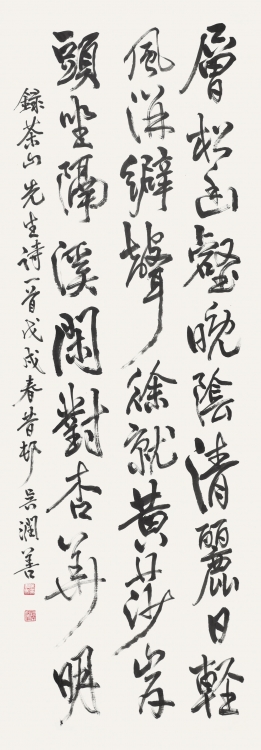 層松幽壑晚陰清麗日輕
風洴澼聲徐就黃莎岸
頭坐隔溪閑對杏華明
錄茶山先生詩一首戊戌春昔邨吳潤善